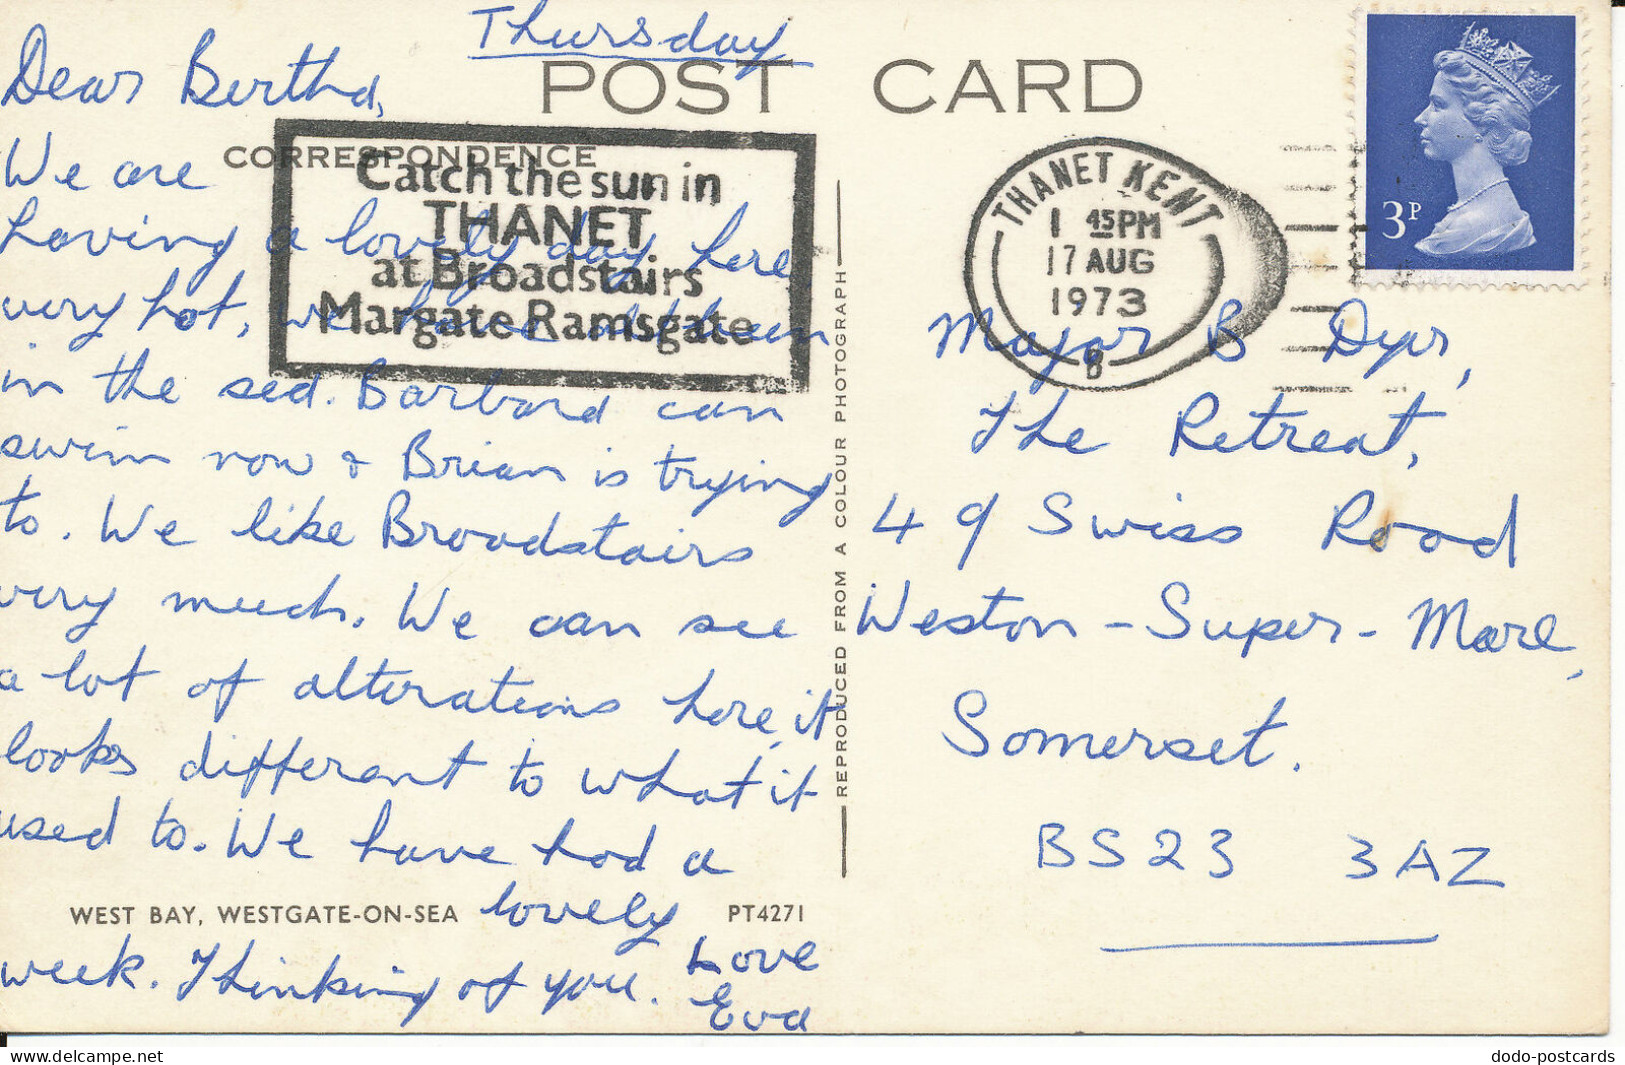 Thursday
POST CARD
Dear Bertha,
CORRESPONDENCE
We are
having a lovely day here,
very hot, we have all been
in the sea. Barbara can
swim now & Brian is trying
to. We like Broadstairs
very much. We can see
a lot of alterations here, it
looks different to what it
used to. We have had a
lovely
week. Thinking of you.
Love
Eva
WEST BAY, WESTGATE-ON-SEA
PT4271
Catch the sun in
THANET
at Broadstairs
Margate Ramsgate
REPRODUCED FROM A COLOUR PHOTOGRAPH
THANET KENT
1 45 PM
17 AUG
1973
B
3P
Major B Dyer,
The Retreat,
49 Swiss Road
Weston-Super-Mare,
Somerset.
BS23 3AZ
https://www.delcampe.net
dodo-postcards